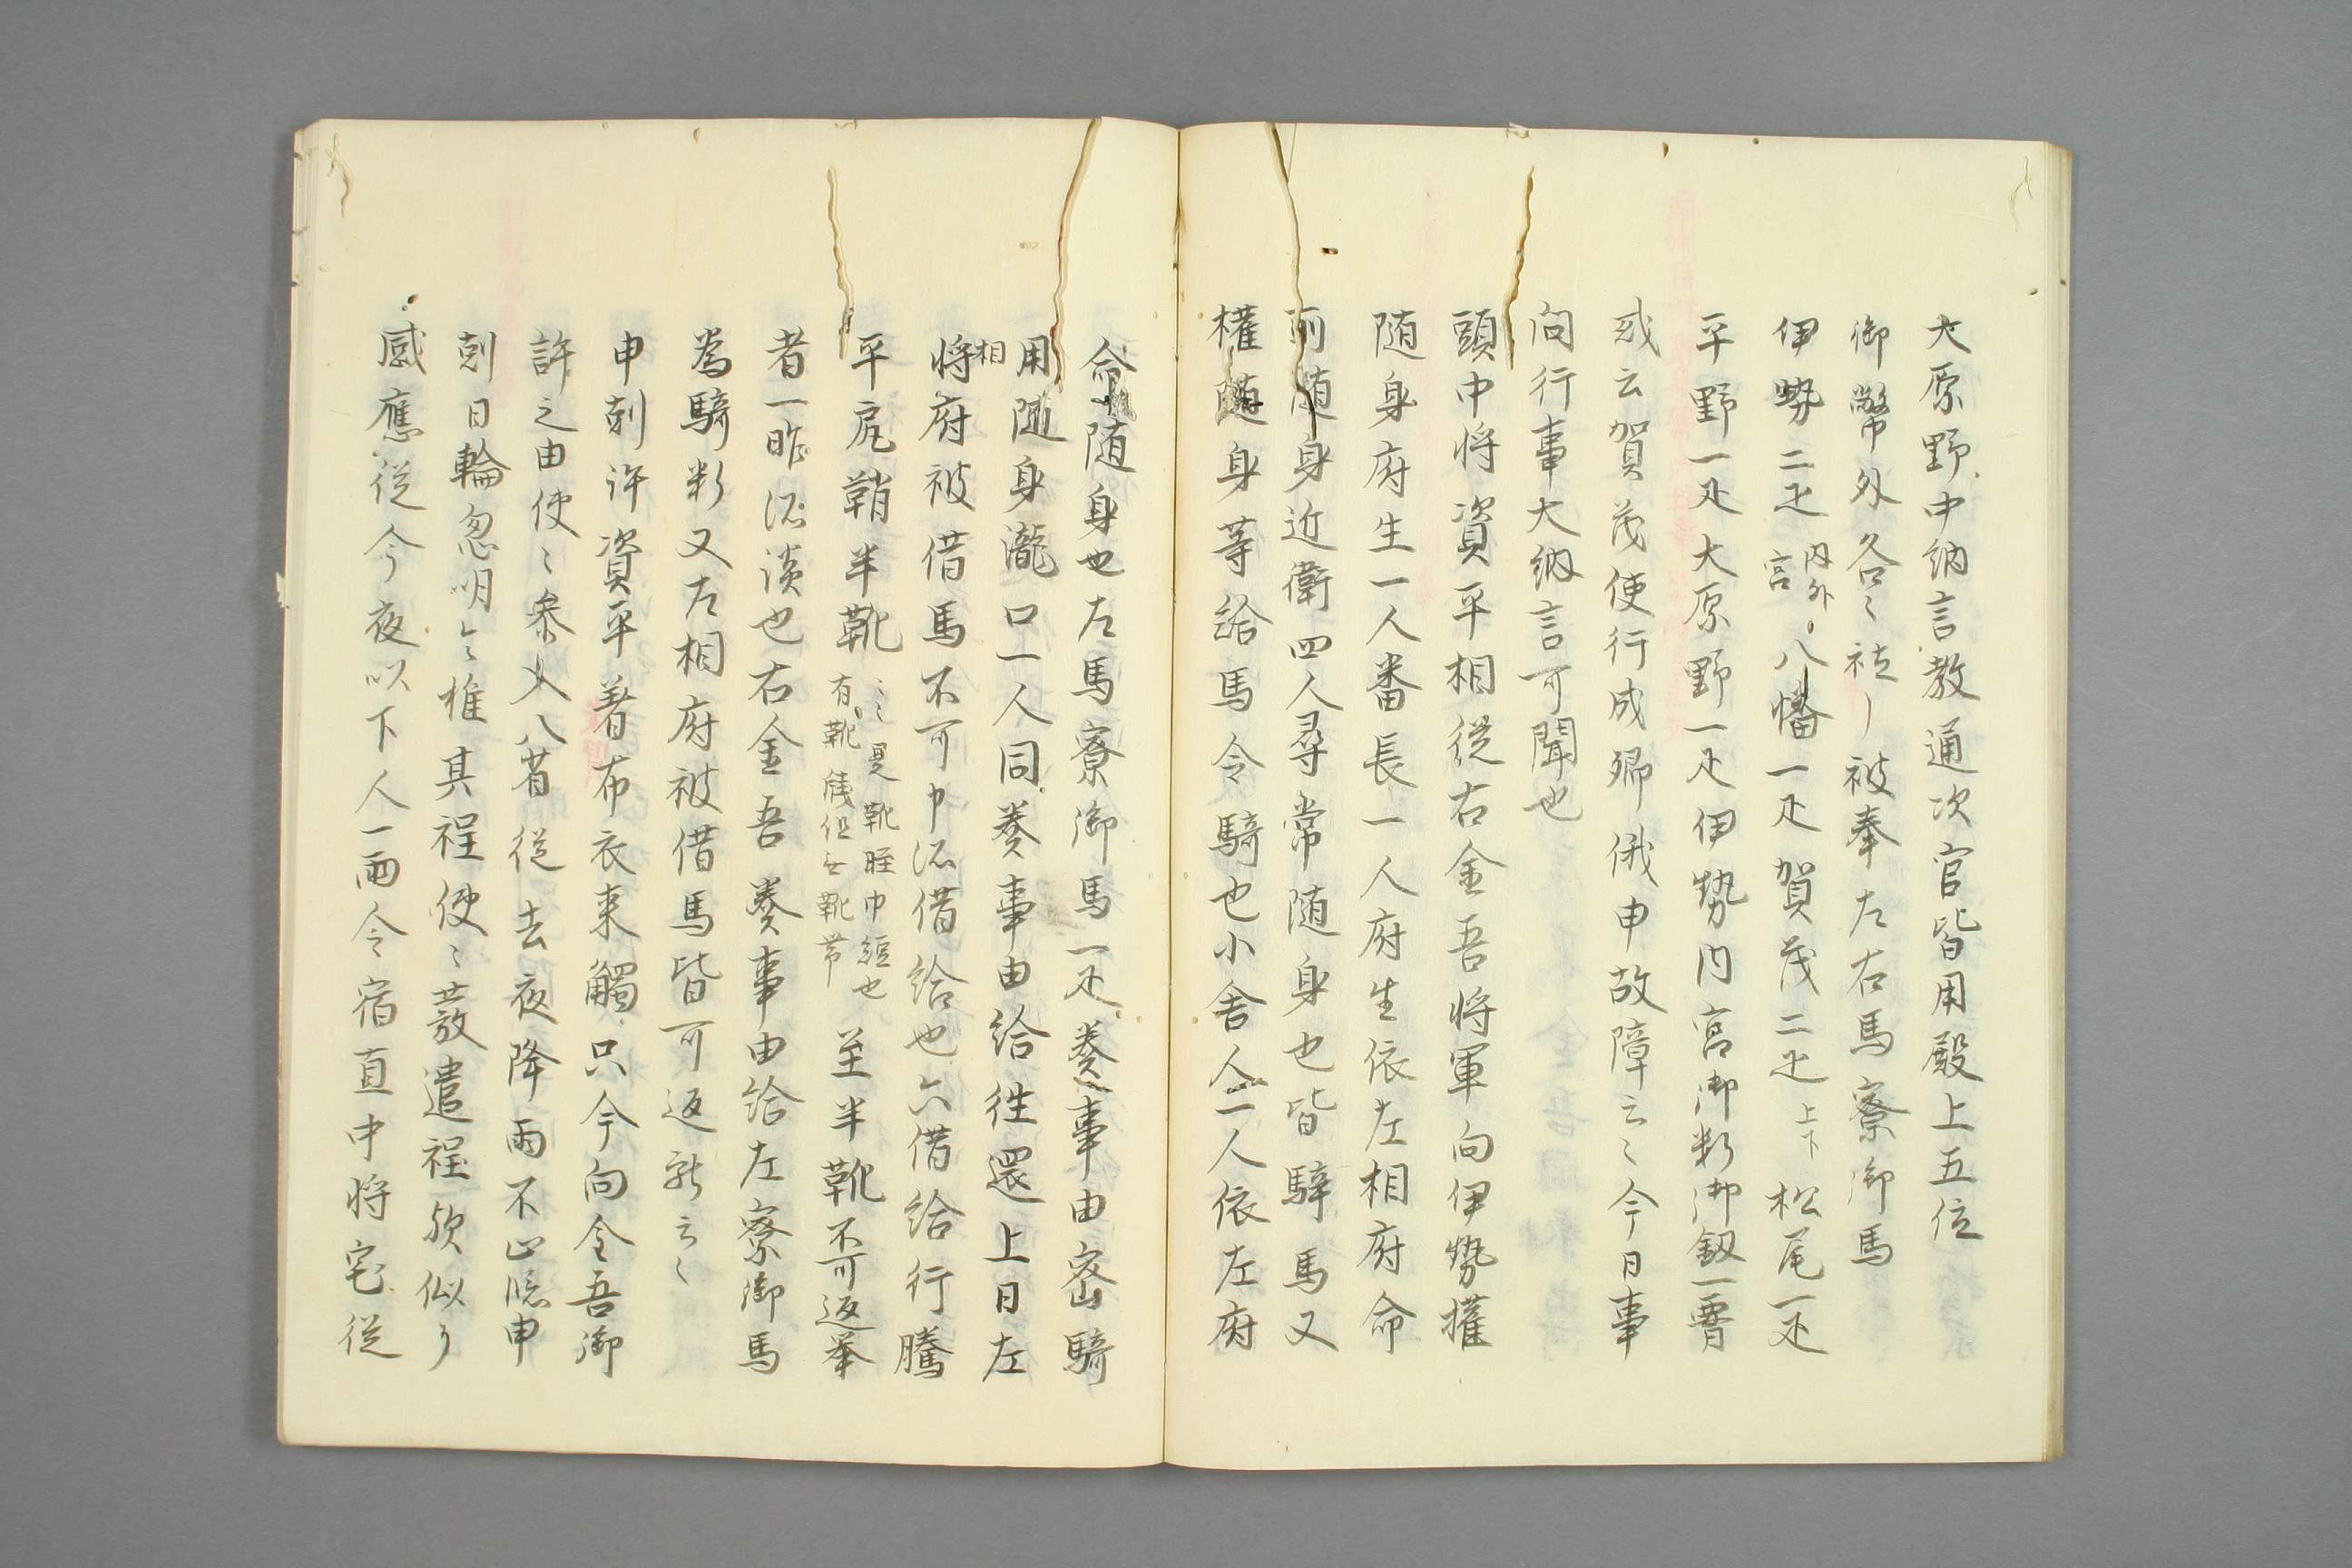 大原野中納言教通次官皆用殿上五位
御幣外各〻社〳被奉左右馬寮御馬
伊勢二疋内外宮八幡一疋賀茂二疋上下松尾一疋
平野一疋大原野一疋伊勢内宮御料御釼一霤
或云賀茂使行成卿俄申故障云〻今日事
向行事大納言可聞也
頭中将資平相従右金吾将軍向伊勢権
随身府生一人番長一人府生依左相府命
前随身近衛四人尋常随身也皆騎馬又
権随身等給馬令騎也小舎人二人依左府
命随身也左馬寮御馬一疋奏事由密騎
用随身瀧口一人同奏事由給往還上日左
将相府被借馬不可申況借給也六借給行騰
平尻鞘半靴〻〻是靴脛巾短也有靴銭但无靴帯至半靴不可返奉
者一昨況談也右金吾奏事由給左寮御馬
為騎料又左相府被借馬皆可返新云〻
申剋許資平著布衣来觸只今向金吾御
許之由使〻参入八省従去夜降雨不止臨申
剋日輪忽明〻推其程使〻發遣程欤似有
感應従今夜以下人一両令宿直中将宅従